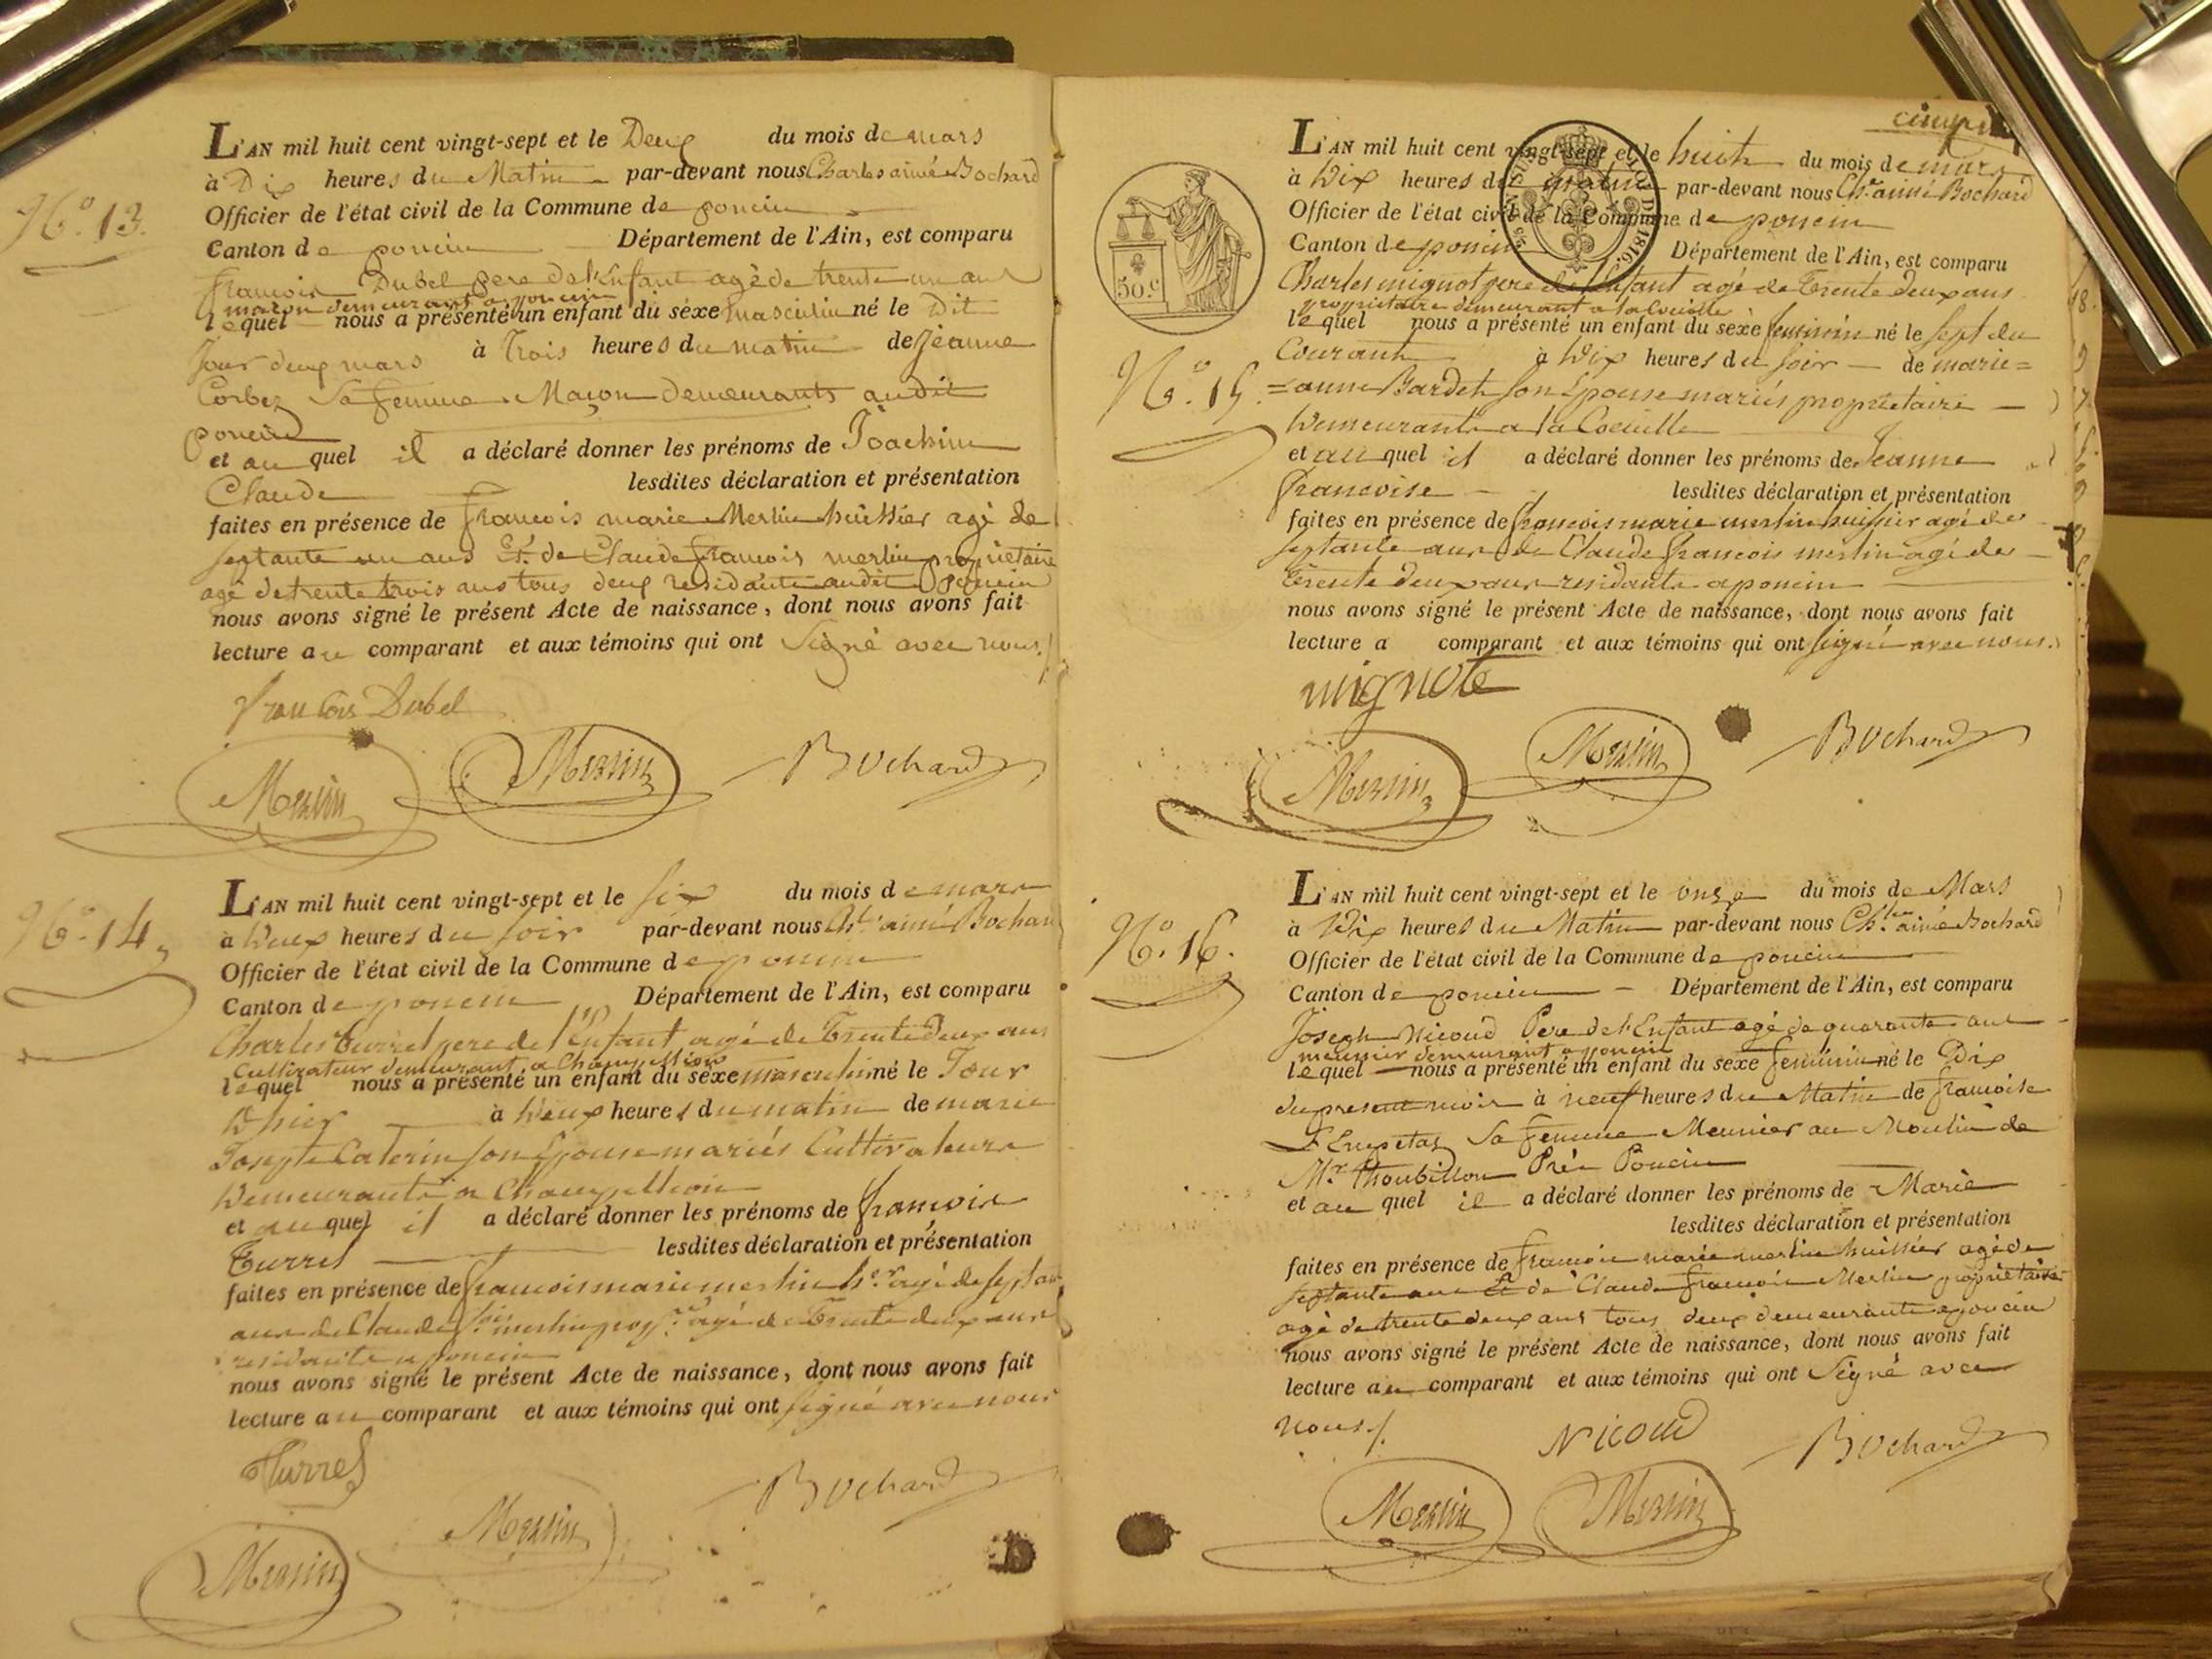 N.º 13.
L'AN mil huit cent vingt-sept et le Deux du mois de mars
à Dix heures du Matin par-devant nous Charles aimé Bochard
Officier de l'état civil de la Commune de poncin
Canton de poncin Département de l'Ain, est comparu
francois Dubel pere de l'Enfant agé de trente un ans
maçon demeurant a poncin
lequel nous a présenté un enfant du séxe masculin né le Dit
Jour deux mars à Trois heures du matin de Jeanne
Corbez Sa femme Maçon demeurants audit
poncin
et au quel il a déclaré donner les prénoms de Joachim
Claude lesdites déclaration et présentation
faites en présence de francois marie Merlin huissier agé de
septante un ans Et de Claude francois merlin propriétaire
agé de trente trois ans tous deux residants audit poncin
nous avons signé le présent Acte de naissance, dont nous avons fait
lecture au comparant et aux témoins qui ont Signé avec nous./.
francois Dubel
Merlin Merlin Bochard
N.º 14.
L'AN mil huit cent vingt-sept et le six du mois de mars
à Deux heures du soir par-devant nous Ch.les aimé Bochard
Officier de l'état civil de la Commune de poncin
Canton de poncin Département de l'Ain, est comparu
Charles Turrel pere de l'Enfant agé de Trente Deux ans
Cultivateur demeurant a Champellion
lequel nous a présenté un enfant du séxe masculin né le Jour
D'hier à Deux heures du matin de marie
Josepte Caterin son Epouse mariés Cultivateurs
Demeurants a Champellion
et au quel il a déclaré donner les prénoms de francois
Turrel lesdites déclaration et présentation
faites en présence de francois marie merlin h.er agé de septante
ans de Claude f.ois merlin prop.re agé de Trente deux ans
residants a poncin
nous avons signé le présent Acte de naissance, dont nous avons fait
lecture au comparant et aux témoins qui ont signé avec nous
Turrel
Merlin Merlin Bochard
50.c
1816.
N.º 15.
L'AN mil huit cent vingt-sept et le huit du mois de mars
à Dix heures du matin par-devant nous Ch.les aimé Bochard
Officier de l'état civil de la Commune de poncin
Canton de poncin Département de l'Ain, est comparu
Charles mignot pere de l'Enfant agé de Trente Deux ans
proprietaire demeurant a la Cueille
lequel nous a présenté un enfant du sèxe feminin né le sept du
Courant à Dix heures du soir de marie=
=anne Bardet son Epouse mariés proprietaire
Demeurants a la Coeuille
et au quel il a déclaré donner les prénoms de Jeanne
francoise lesdites déclaration et présentation
faites en présence de francois marie merlin huissier agé de
septante ans de Claude francois merlin agé de
Trente deux ans residants a poncin
nous avons signé le présent Acte de naissance, dont nous avons fait
lecture a comparant et aux témoins qui ont signé avec nous.
mignot
Merlin Merlin Bochard
N.º 16.
L'AN mil huit cent vingt-sept et le onze du mois de Mars
à Dix heures du Matin par-devant nous Ch.les aimé Bochard
Officier de l'état civil de la Commune de poncin
Canton de poncin Département de l'Ain, est comparu
Joseph Nicoud Pere de l'Enfant agé de quarante ans
meunier demeurant a poncin
lequel nous a présenté un enfant du sexe feminin né le Dix
du present mois à neuf heures du Matin de francoise
Sa femme Meunier au Moulin de
M.r Thoubillon Près Poncin
et au quel il a déclaré donner les prénoms de Marie
lesdites déclaration et présentation
faites en présence de francois marie merlin huissier agé de
septante ans Et de Claude francois Merlin propriétaire
agé de trente deux ans tous deux demeurants a poncin
nous avons signé le présent Acte de naissance, dont nous avons fait
lecture au comparant et aux témoins qui ont Signé avec
nous./.
Nicoud Bochard
Merlin Merlin